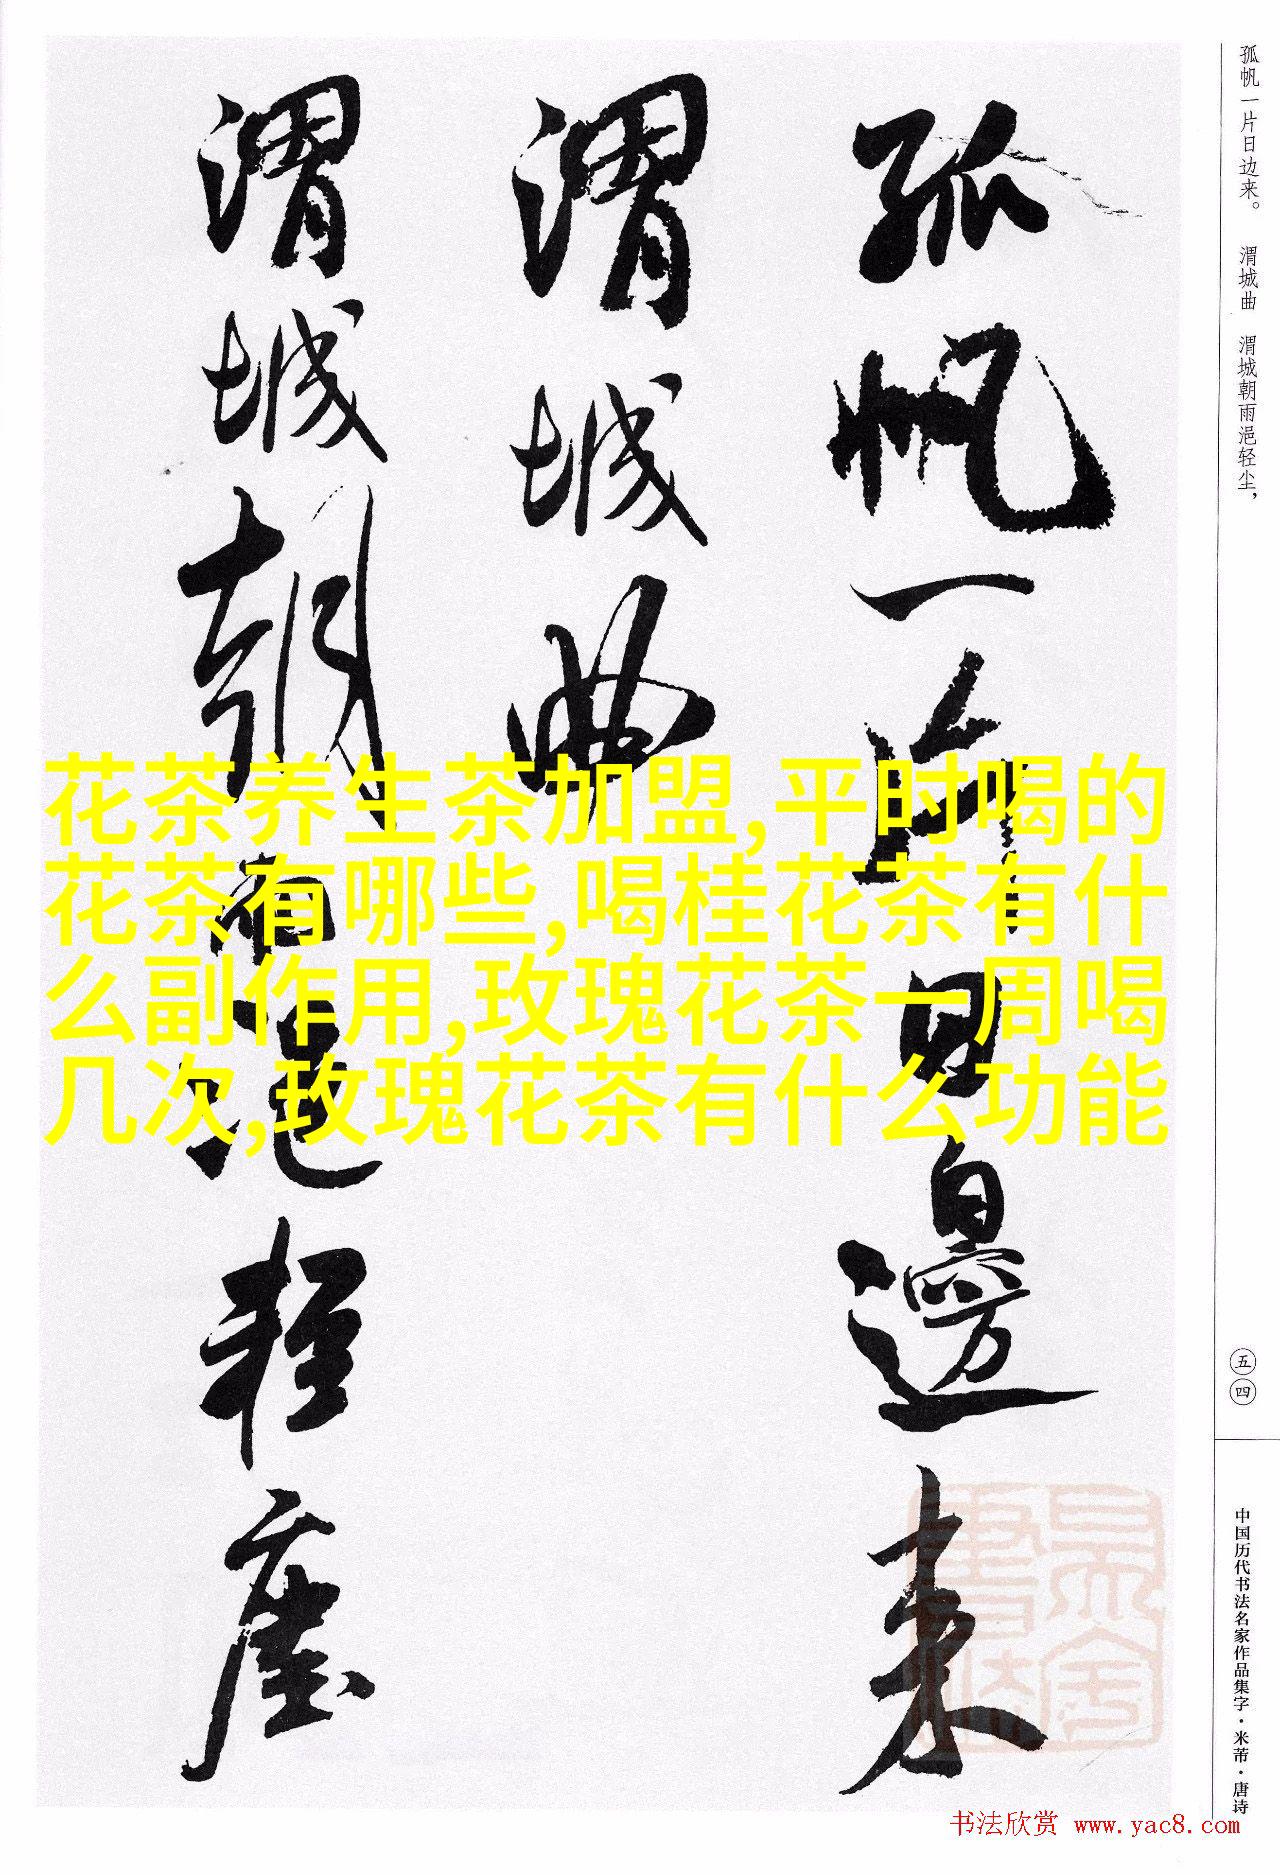 孤帆一片日边来。 渭城曲 渭城朝雨浥轻尘,
孤帆一片日邊来
渭城曲
渭城朝雨浥轻塵
花茶养生茶加盟,平时喝的
花茶有哪些,喝桂花茶有什
么副作用,玫瑰花茶一周喝
几次,玫瑰花茶有什么功能
五四
中国历代书法名家作品集字·米芾·唐诗
书法欣赏 www.yac8.com